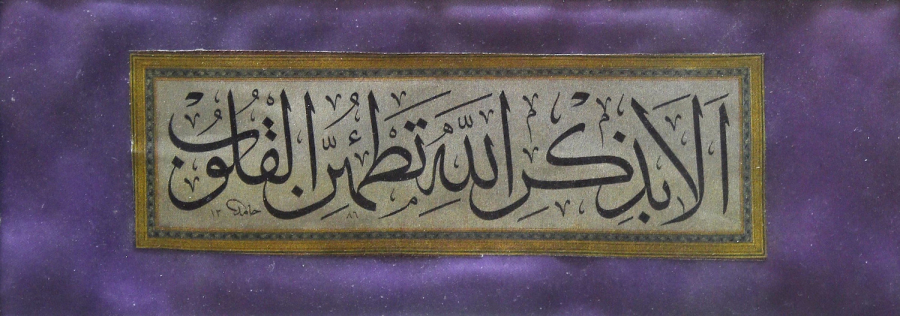 اَلَا بِذِكْرِ اللّٰهِ تَطْمَئِنُّ الْقُلُوبُ
حامد ١٣٨٦